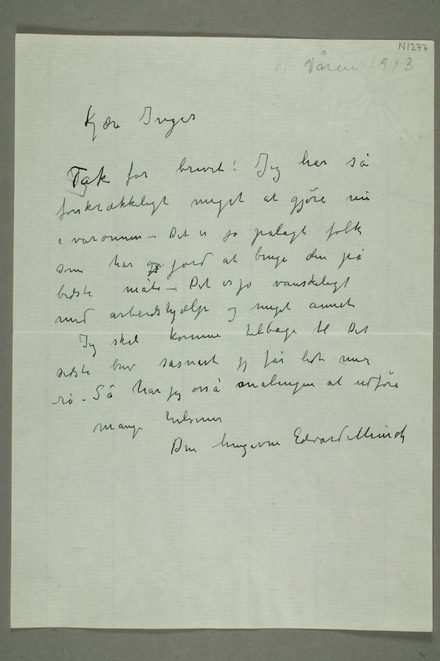 N1277
Våren 1943
Kjære Inger
Tak for brevet! Jeg har så
forskrækkeligt meget at gjøre nu
i våronnen – Det er jo palagt folk
som har jord at bruge den på
bedste måte – Det er jo vanskeligt
med arbeidshjælp og meget annet
Jeg skal komme tilbage til Dit
sidste brev sasnart jeg får lidt mer
ro – Så har jeg også malingen at utføre
mange hilsener
Din hengivne Edvard Munch